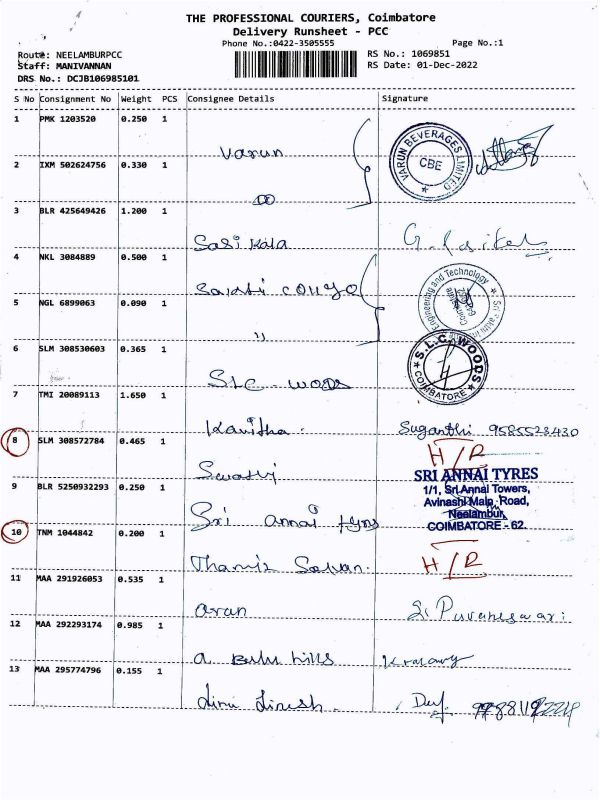 THE PROFESSIONAL COURIERS, Coimbatore
Delivery Runsheet - PCC
Phone No.:0422-3505555 Page No.:1
Route: NEELAMBURPCC RS No.: 1069851
Staff: MANIVANNAN RS Date: 01-Dec-2022
DRS No.: DCJB106985101
S No Consignment No Weight PCS Consignee Details Signature
1 PMK 1203520 0.250 1
Varun
VARUN BEVERAGES LIMITED
CBE
2 IXM 502624756 0.330 1
3 BLR 425649426 1.200 1
Sasi Kala
4 NKL 3084889 0.500 1
Engineering and Technology
5 NGL 6899063 0.090 1
"
6 SLM 308530603 0.365 1
SLC woods
S.L.C. WOODS
COIMBATORE
7 TMI 20089113 1.650 1
Kavitha. Suganthi 9585528430
8 SLM 308572784 0.465 1
H/R
Swasti
9 BLR 5250932293 0.250 1
Sri annai tyres
SRI ANNAI TYRES
1/1, Sri Annai Towers,
Avinashi Main Road,
Neelambur,
COIMBATORE - 62.
10 TNM 1044842 0.200 1
Thamiz Selvan. H/R
11 MAA 291926053 0.535 1
arun S. Puvaneswari
12 MAA 292293174 0.985 1
13 MAA 295774796 0.155 1